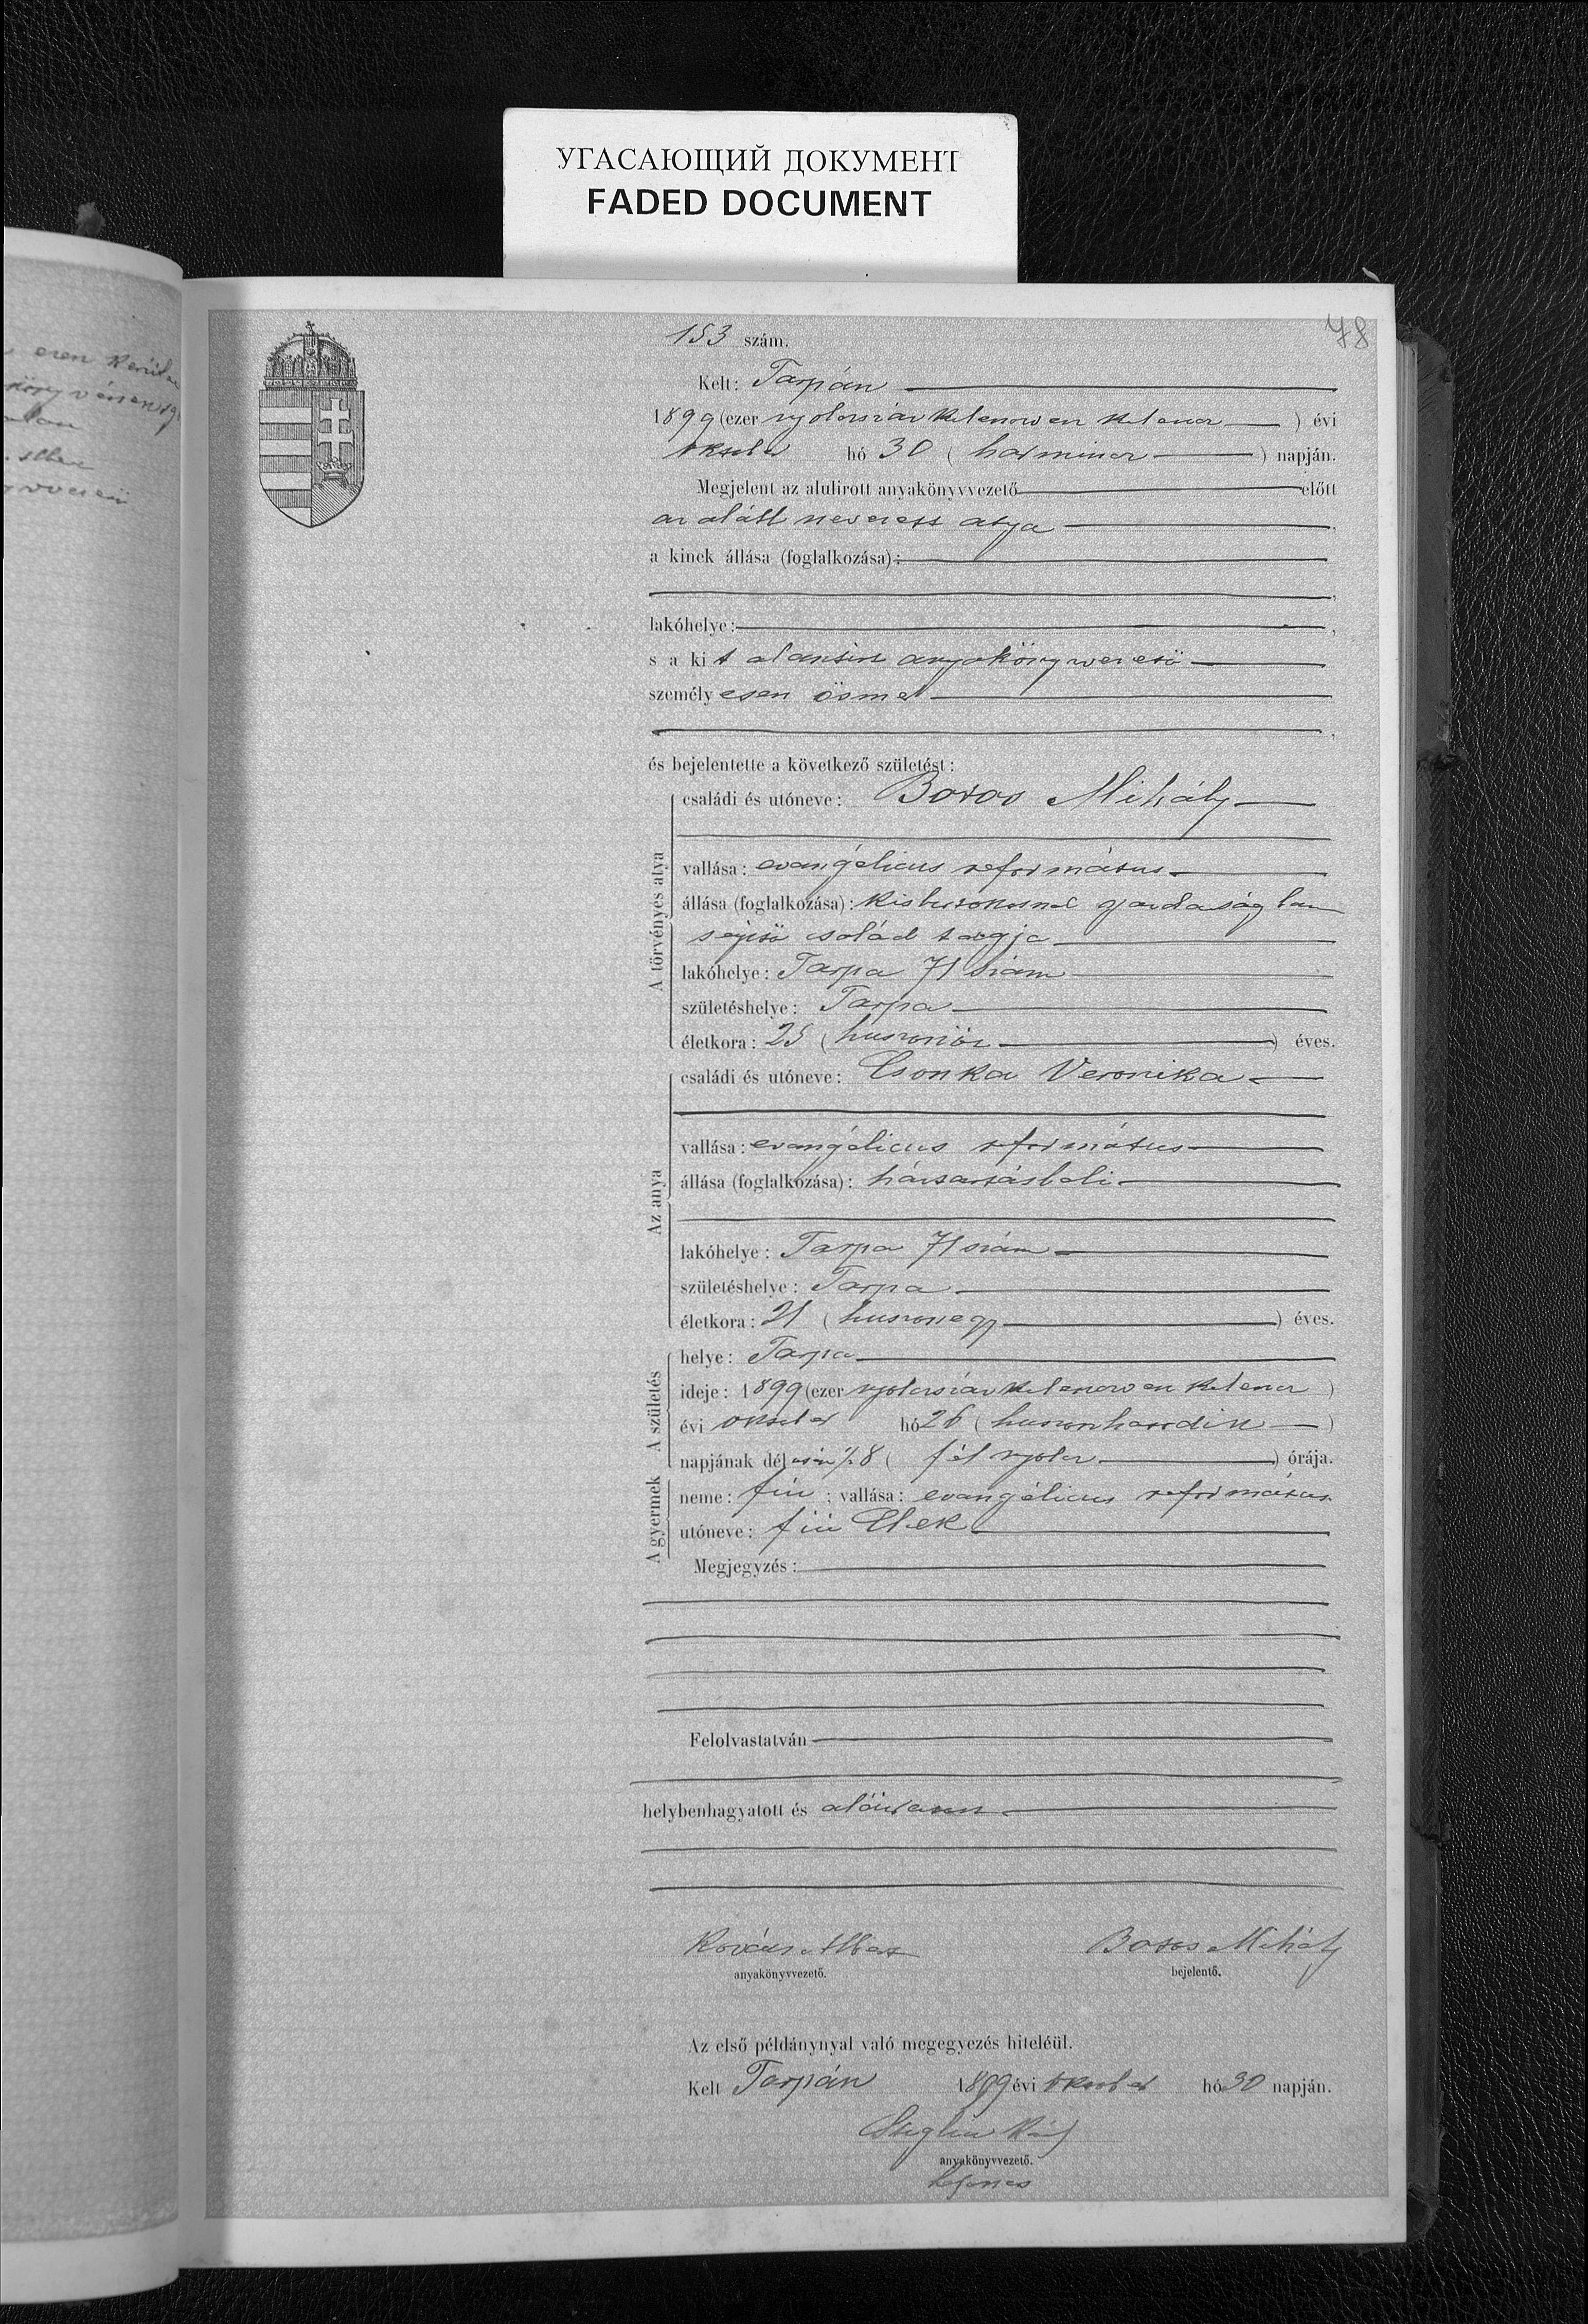 УГАСАЮЩИЙ ДОКУМЕНТ
FADED DOCUMENT
78
153 szám.
Kelt: Tarpán
1899 (ezer nyolcszáz kilencven kilencz) évi
október hó 30 (harmincz) napján.
Megjelent az alulirott anyakönyvvezető előtt
az alább nevezett atya
a kinek állása (foglalkozása):
lakóhelye:
s a kit alantirt anyakönyvvezető
személyesen ösmer
és bejelentette a következő születést:
A törvényes atya
családi és utóneve: Boros Mihály
vallása: evangélicus református
állása (foglalkozása): kisbirtokosnál gazdaságban
segitő család tagja
lakóhelye: Tarpa 71 szám
születéshelye: Tarpa
életkora: 25 (huszonöt) éves.
Az anya
családi és utóneve: Csonka Veronika
vallása: evangélicus református
állása (foglalkozása): háztartásbeli
lakóhelye: Tarpa 71 szám
születéshelye: Tarpa
életkora: 21 (huszonegy) éves.
A születés
helye: Tarpa
ideje: 1899 (ezer nyolcszáz kilencven kilencz)
évi október hó 26 (huszonhatodik)
napjának dél 1/2 8 (fél nyolcz) órája.
A gyermek
neme: fiú; vallása: evangélicus református
utóneve: fiú Elek
Megjegyzés:
Felolvastatván
helybenhagyatott és aláiratott
Kovács Albert Boros Mihály
anyakönyvvezető. bejelentő.
Az első példánynyal való megegyezés hiteléül.
Kelt Tarpán 1899 évi október hó 30 napján.
anyakönyvvezető.
helyettes